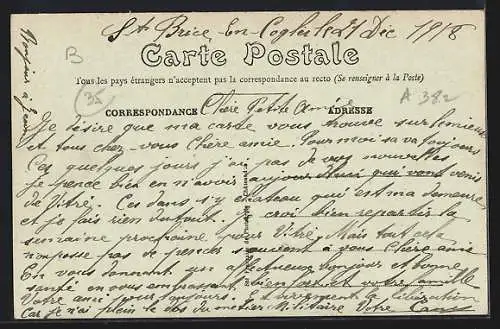 St Brice En Cogles le 21 Dic 1918
Bonjour à Jean
B
Carte Postale
Tous les pays étrangers n'acceptent pas la correspondance au recto (Se renseigner à la Poste)
35
A 382
CORRESPONDANCE Chère Petite Amie ADRESSE
Je désire que ma carte vous trouve
et tous chez vous chère amie. Pour moi sa va toujours
Ces quelques jours j'ai pas de vos nouvelles
je pense bien en n'avoir aujourd'hui qui vont venis
de Vitré. Ces dans s'y chateau qui est ma demeure
et je fais rien du tout. Je crois bien repartir la
semaine prochaine pour Vitré. Mais tout cela
pas de penser souvent à vous chère amie
En vous donnant un affectueux bonjour et bonne
santé en vous embrassant bien fort et votre famille
Votre ami pour toujours. Et la libération
Car je n'ai plein le dos du metier Militaire Votre